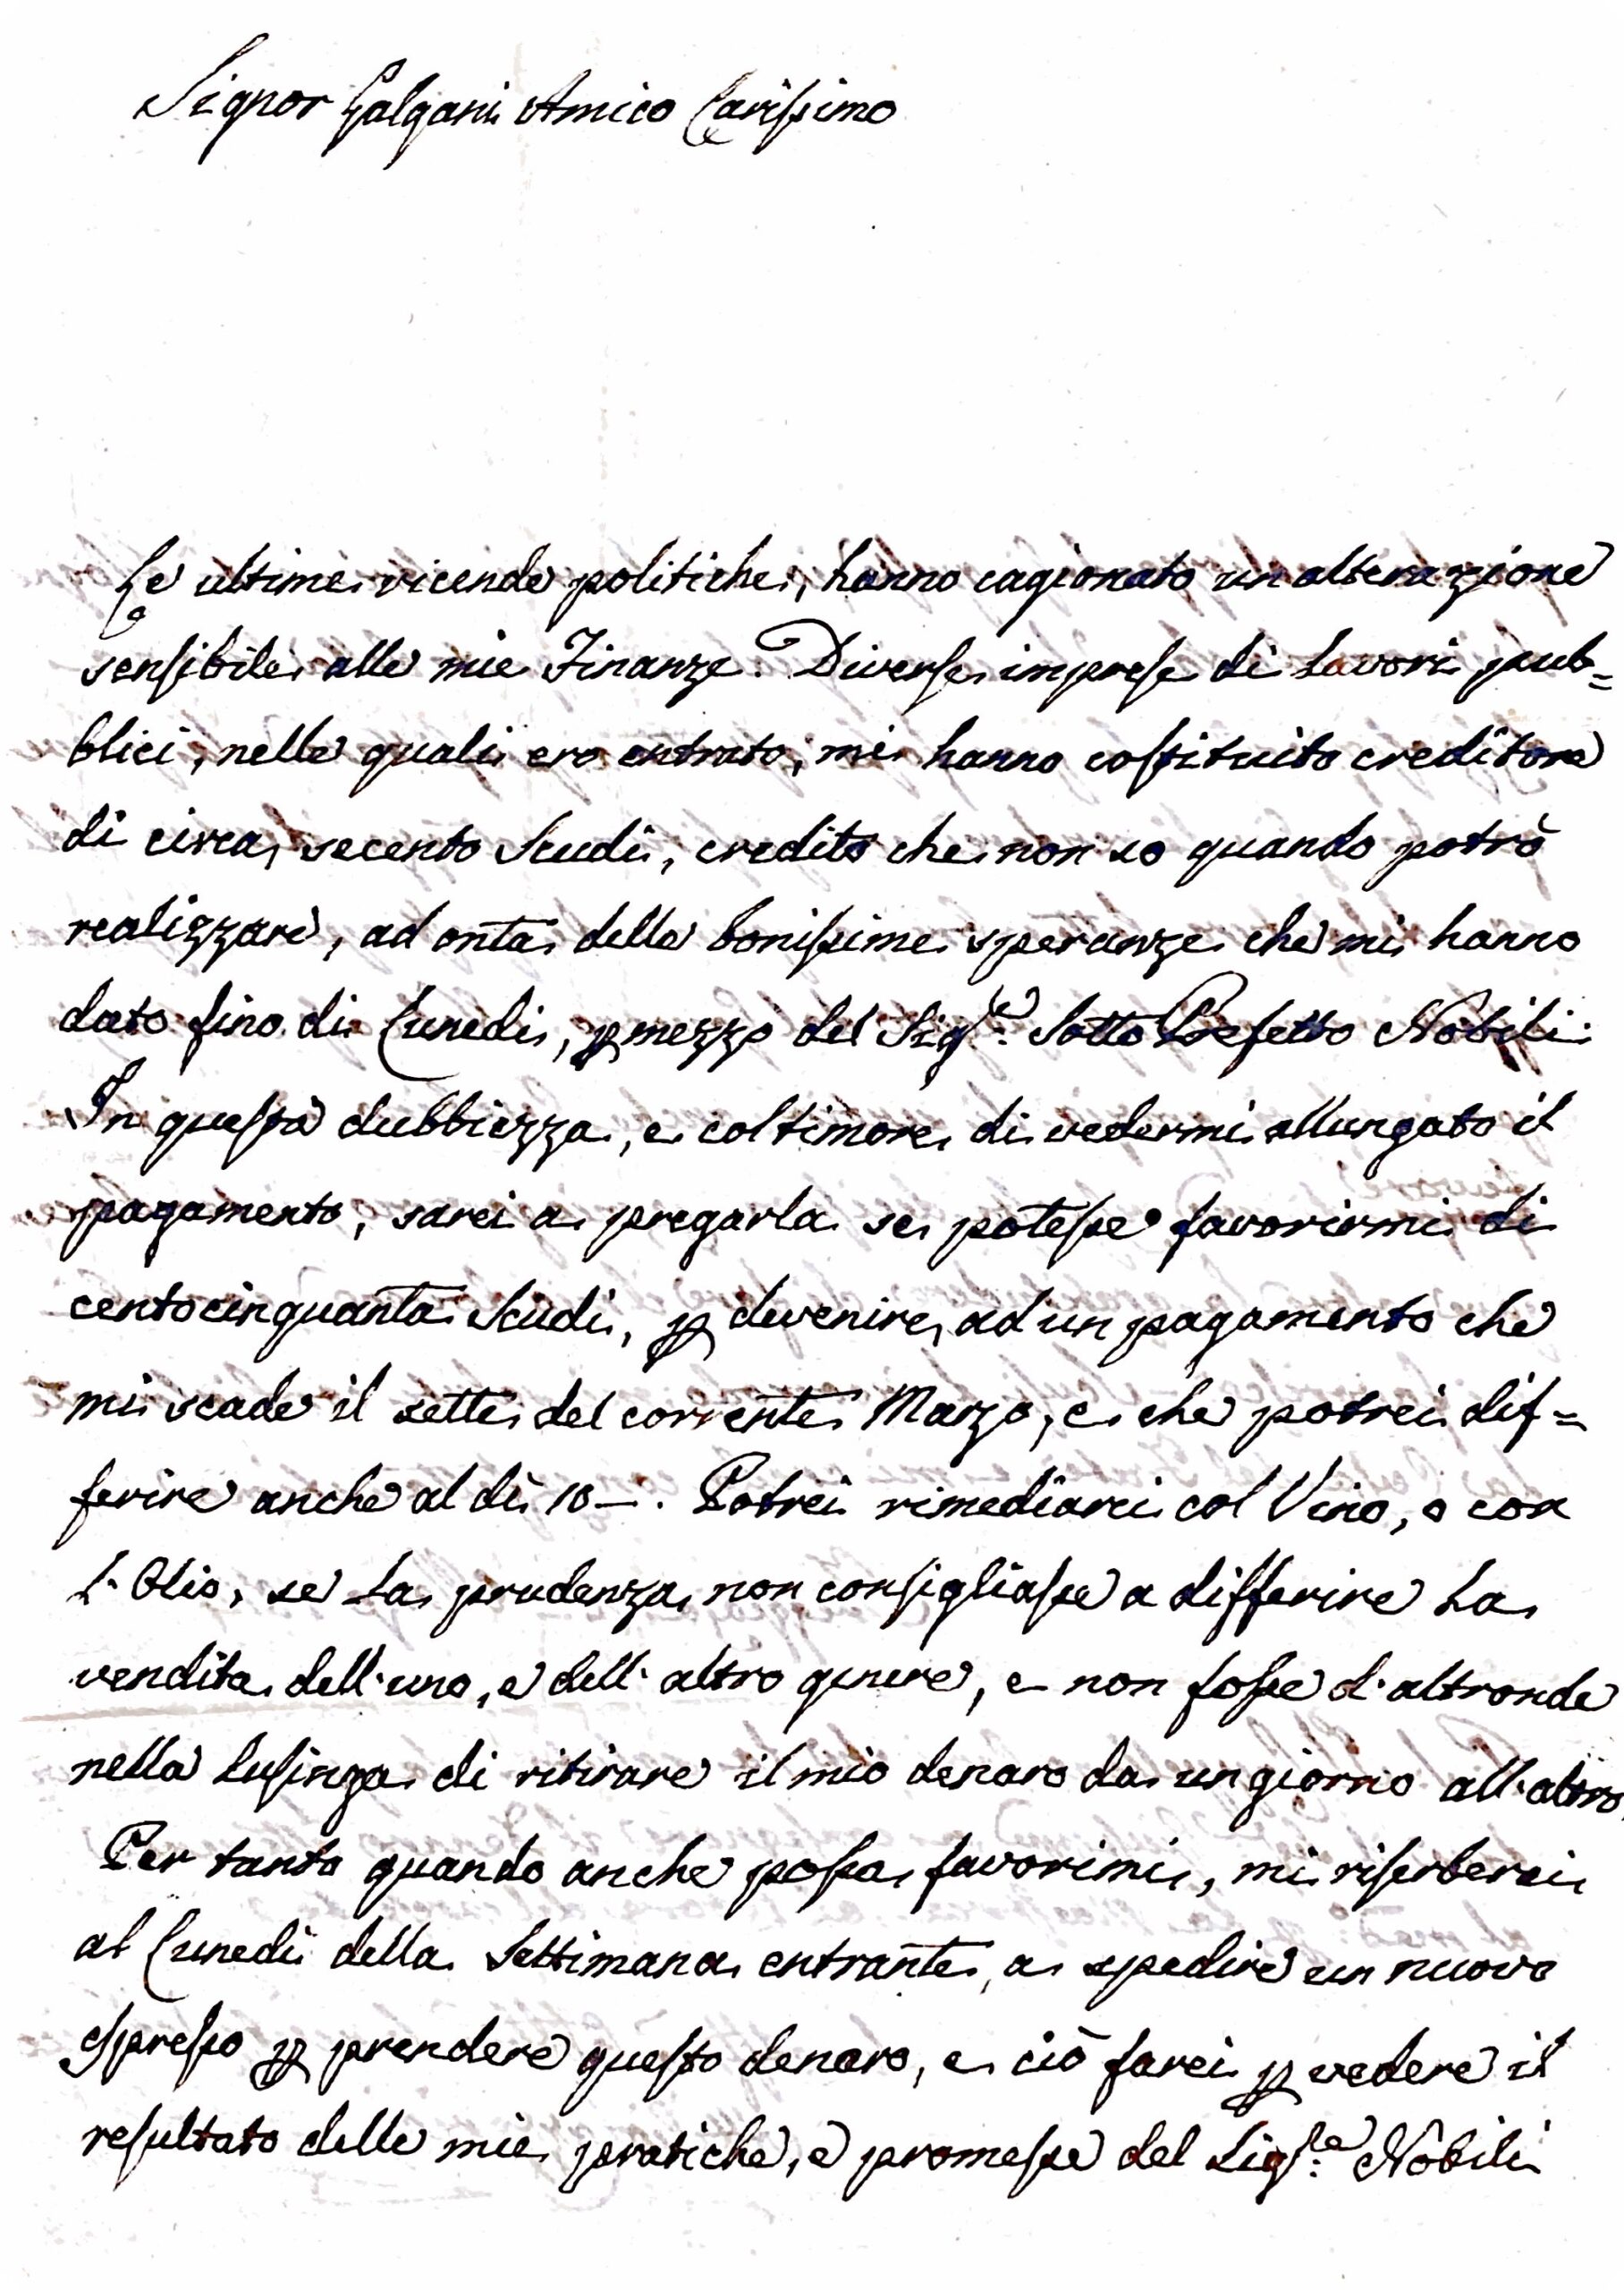 Signor Galgani Amico Carissimo
Le ultime vicende politiche, hanno cagionato un alterazione
sensibile alle mie Finanze. Diverse imprese di Lavori pub=
blici, nelle quali ero entrato, mi hanno costituito creditore
di circa secento Scudi, credito che non so quando potrò
realizzare, ad onta delle bonissime speranze che mi hanno
dato fino di Lunedi, p mezzo del Sig.re Sotto Prefetto Nobili.
In questa dubbiezza, e col timore di vedermi allungato il
pagamento, sarei a pregarla se potesse favorirmi di
centocinquanta Scudi, p devenire ad un pagamento che
mi scade il sette del corrente Marzo, e che potrei dif=
ferire anche al dì 10 –. Potrei rimediarci col Vino, o con
L'Olio, se La prudenza non consigliasse a differire La
vendita dell'uno, e dell'altro genere, e non fosse d'altronde
nella Lusinga di ritirare il mio denaro da un giorno all'altro.
Per tanto quando anche possa favorimi, mi riserberei
al Lunedì della Settimana entrante, a spedire un nuovo
espresso p prendere questo denaro, e ciò farei p vedere il
resultato delle mie pratiche, e promesse del Sig.re Nobili